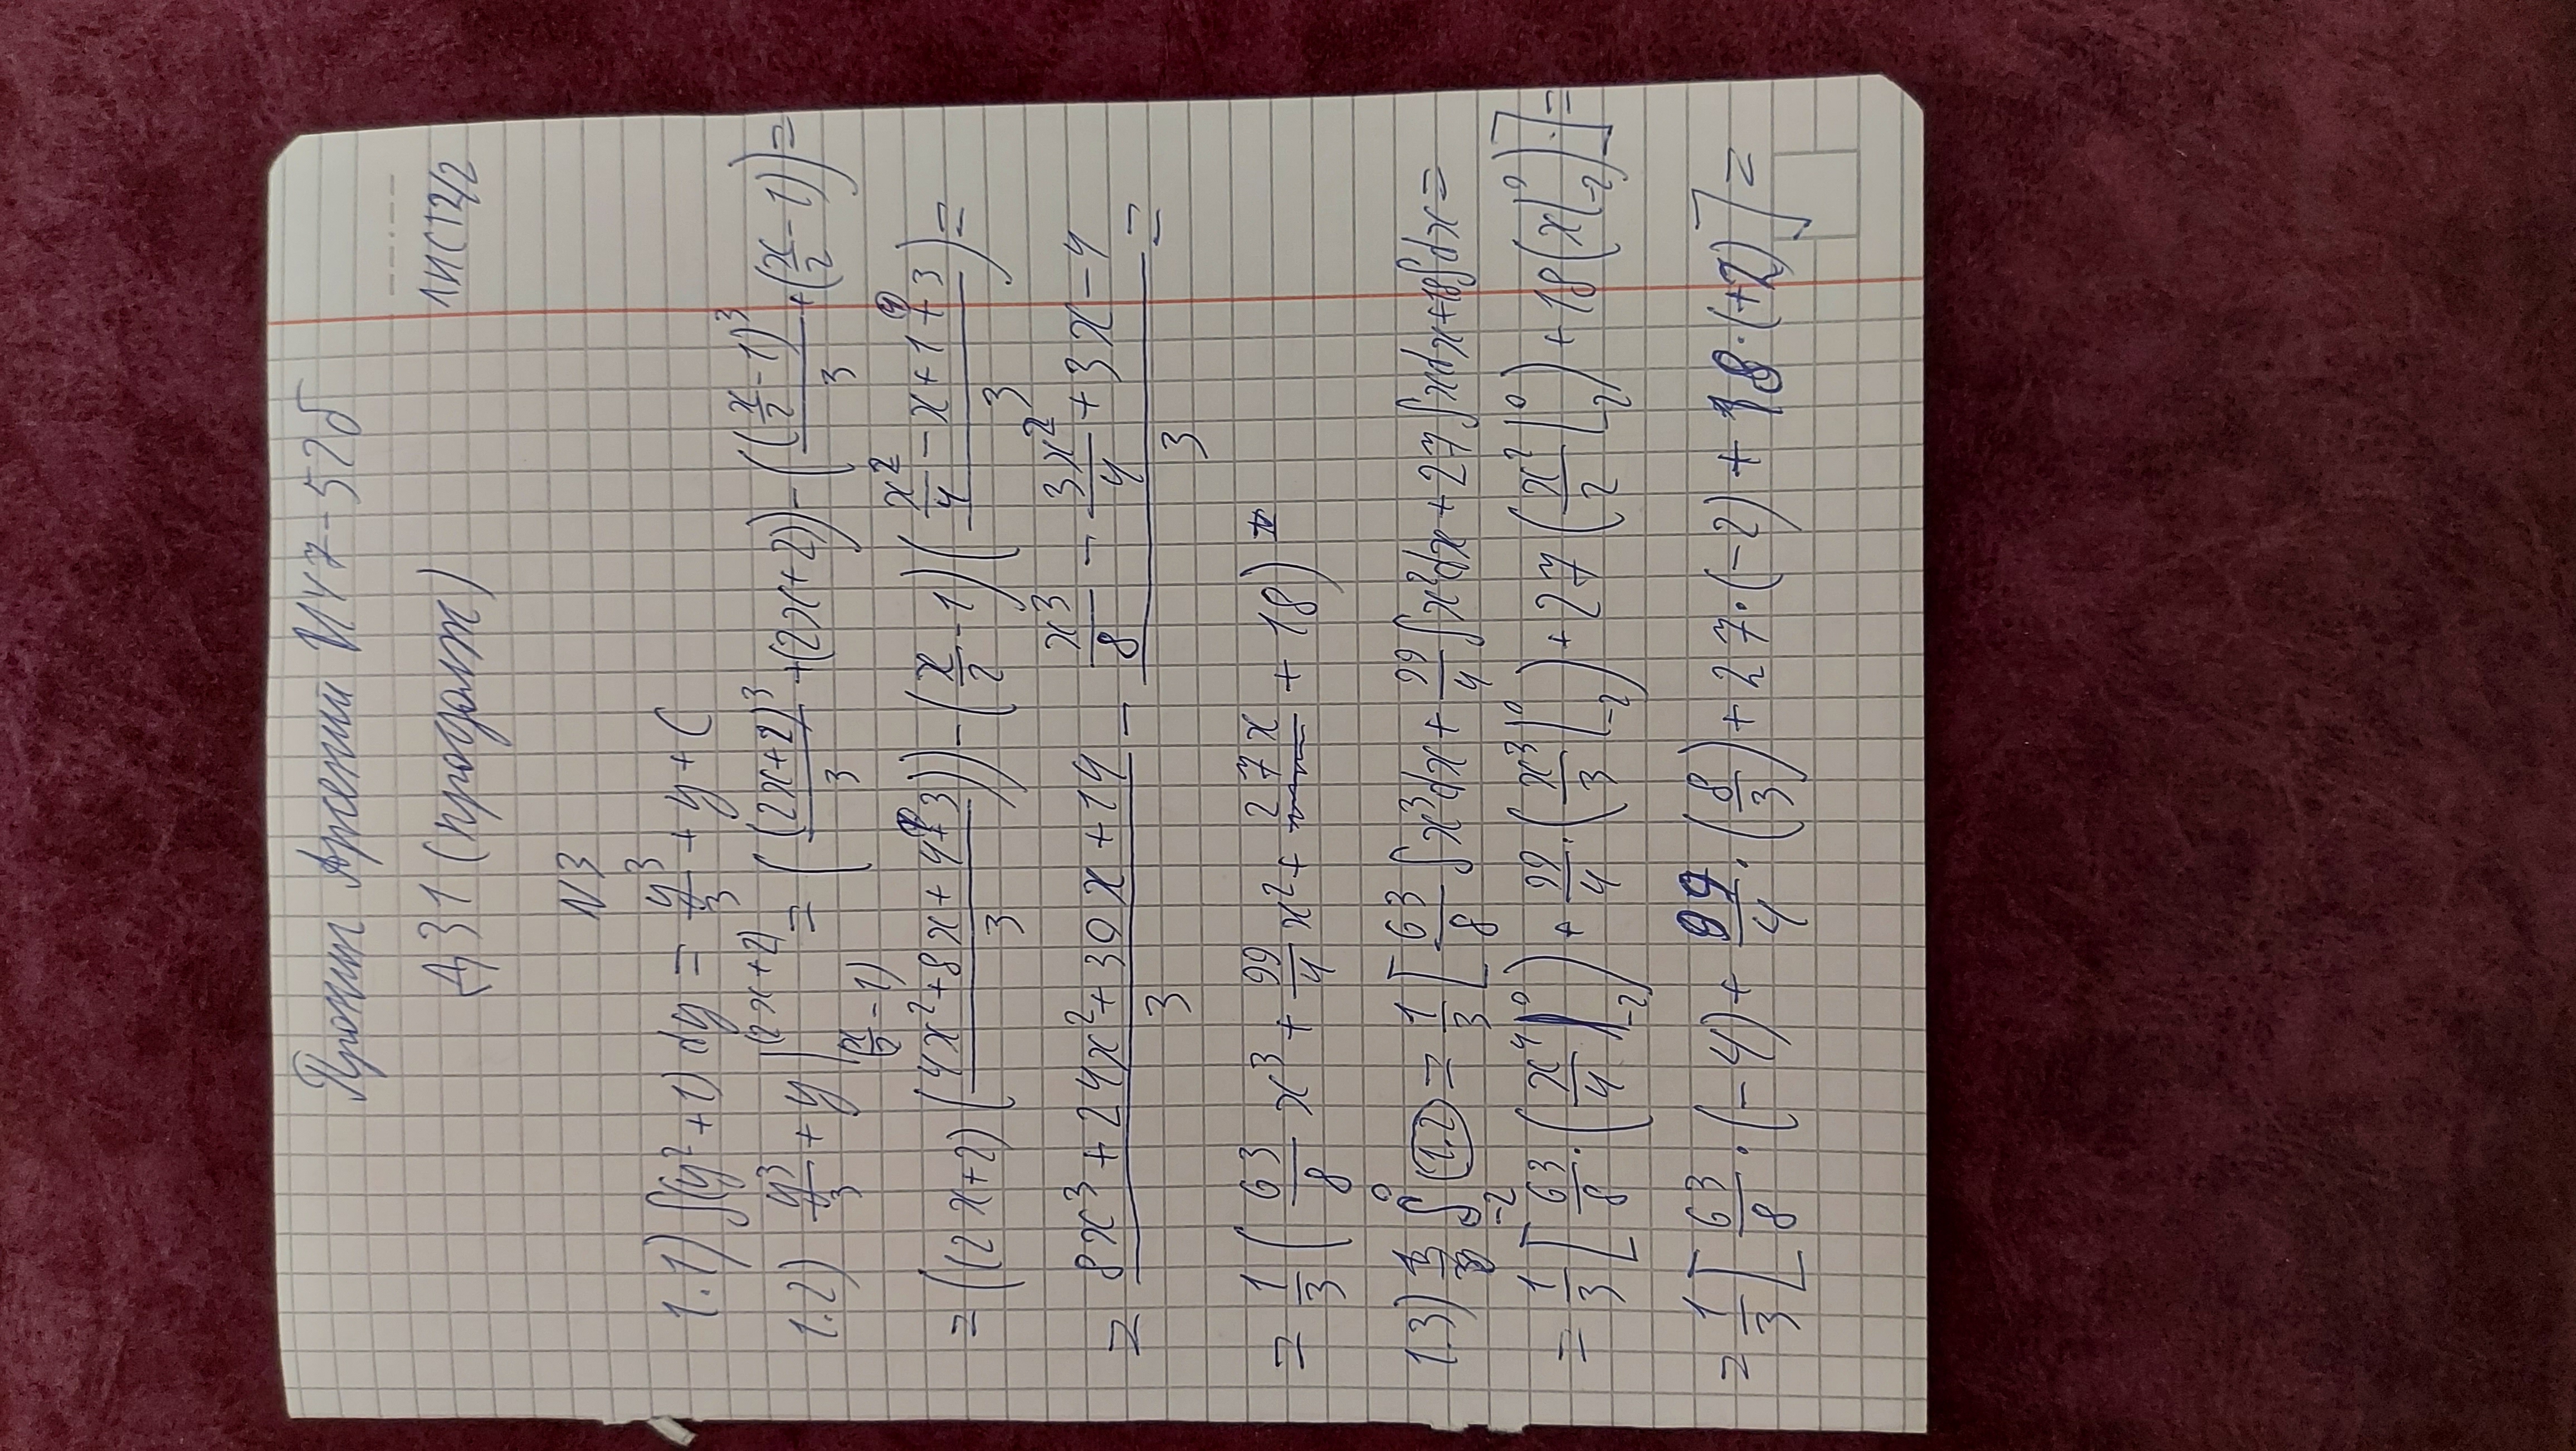 Пронин Арсений ИУ7-52б
ДЗ1 (продолж)
ЛИСТ2/2
N3
1.1) ∫(y²+1) dy = y³/3 + y + C
1.2) y³/3 + y |_(x/2 - 1)^(2x+2) = ((2x+2)³/3 + (2x+2)) - ((x/2 - 1)³/3 + (x/2 - 1)) =
= ((2x+2)((4x²+8x+4+3)/3)) - (x/2 - 1)((x²/4 - x+1+3)/3) =
= (8x³+24x²+30x+14)/3 - (x³/8 - 3x²/4 + 3x - 4)/3 =
= 1/3 (63/8 x³ + 99/4 x² + 27x + 18)
1.3) 1/3 ∫_-2^0 (1.2) = 1/3 [63/8 ∫x³dx + 99/4 ∫x²dx + 27∫xdx+18∫dx =
= 1/3 [63/8 · (x⁴/4 |_-2^0) + 99/4 · (x³/3 |_-2^0) + 27 (x²/2 |_-2^0) + 18(x|_-2^0)] =
= 1/3 [63/8 · (-4) + 99/4 · (8/3) + 27·(-2) + 18·(+2)] =